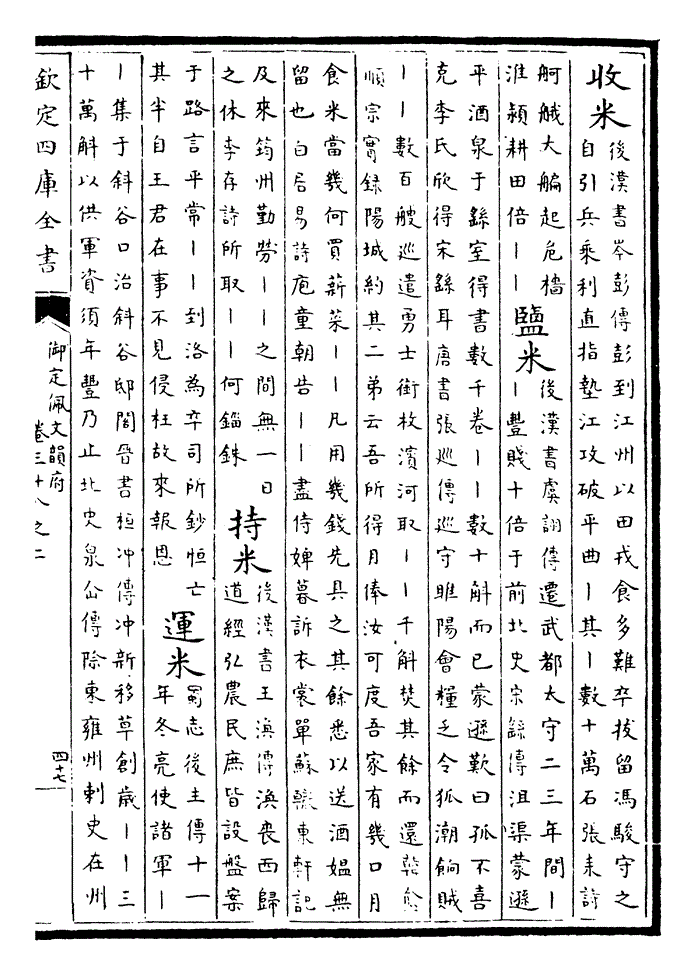 收米
後漢書岑彭傳彭到江州以田戎食多難卒拔留馮駿守之
自引兵乘利直指墊江攻破平曲丨其丨數十萬石張耒詩
舸艤大艑起危檣
淮潁耕田倍丨丨
鹽米
後漢書虞詡傳遷武都太守二三年間丨
丨豐賤十倍于前北史宋繇傳沮渠蒙遜
平酒泉于繇室得書數千卷丨丨數十斛而已蒙遜歎曰孤不喜
克李氏欣得宋繇耳唐書張巡傳巡守睢陽會糧乏令狐潮餉賊
丨丨數百艘巡遣勇士銜枚濱河取丨丨千斛焚其餘而還韓愈
順宗實録陽城約其二弟云吾所得月俸汝可度吾家有幾口月
食米當幾何買薪菜丨丨凡用幾錢先具之其餘悉以送酒媪無
留也白居易詩庖童朝告丨丨盡侍婢暮訴衣裳單蘇轍東軒記
及來筠州勤勞丨丨之間無一日
之休李存詩所取丨丨何錙銖
持米
後漢書王渙傳渙喪西歸
道經弘農民庶皆設盤案
于路言平常丨丨到洛為卒司所鈔恒亡
其半自王君在事不見侵枉故來報恩
運米
蜀志後主傳十一
年冬亮使諸軍丨
丨集于斜谷口治斜谷邸閣晉書桓冲傳冲新移草創歲丨丨三
十萬斛以供軍資須年豐乃止北史泉仚傳除東雍州刺史在州
欽定四庫全書
御定佩文韻府
卷三十八之二
四十七